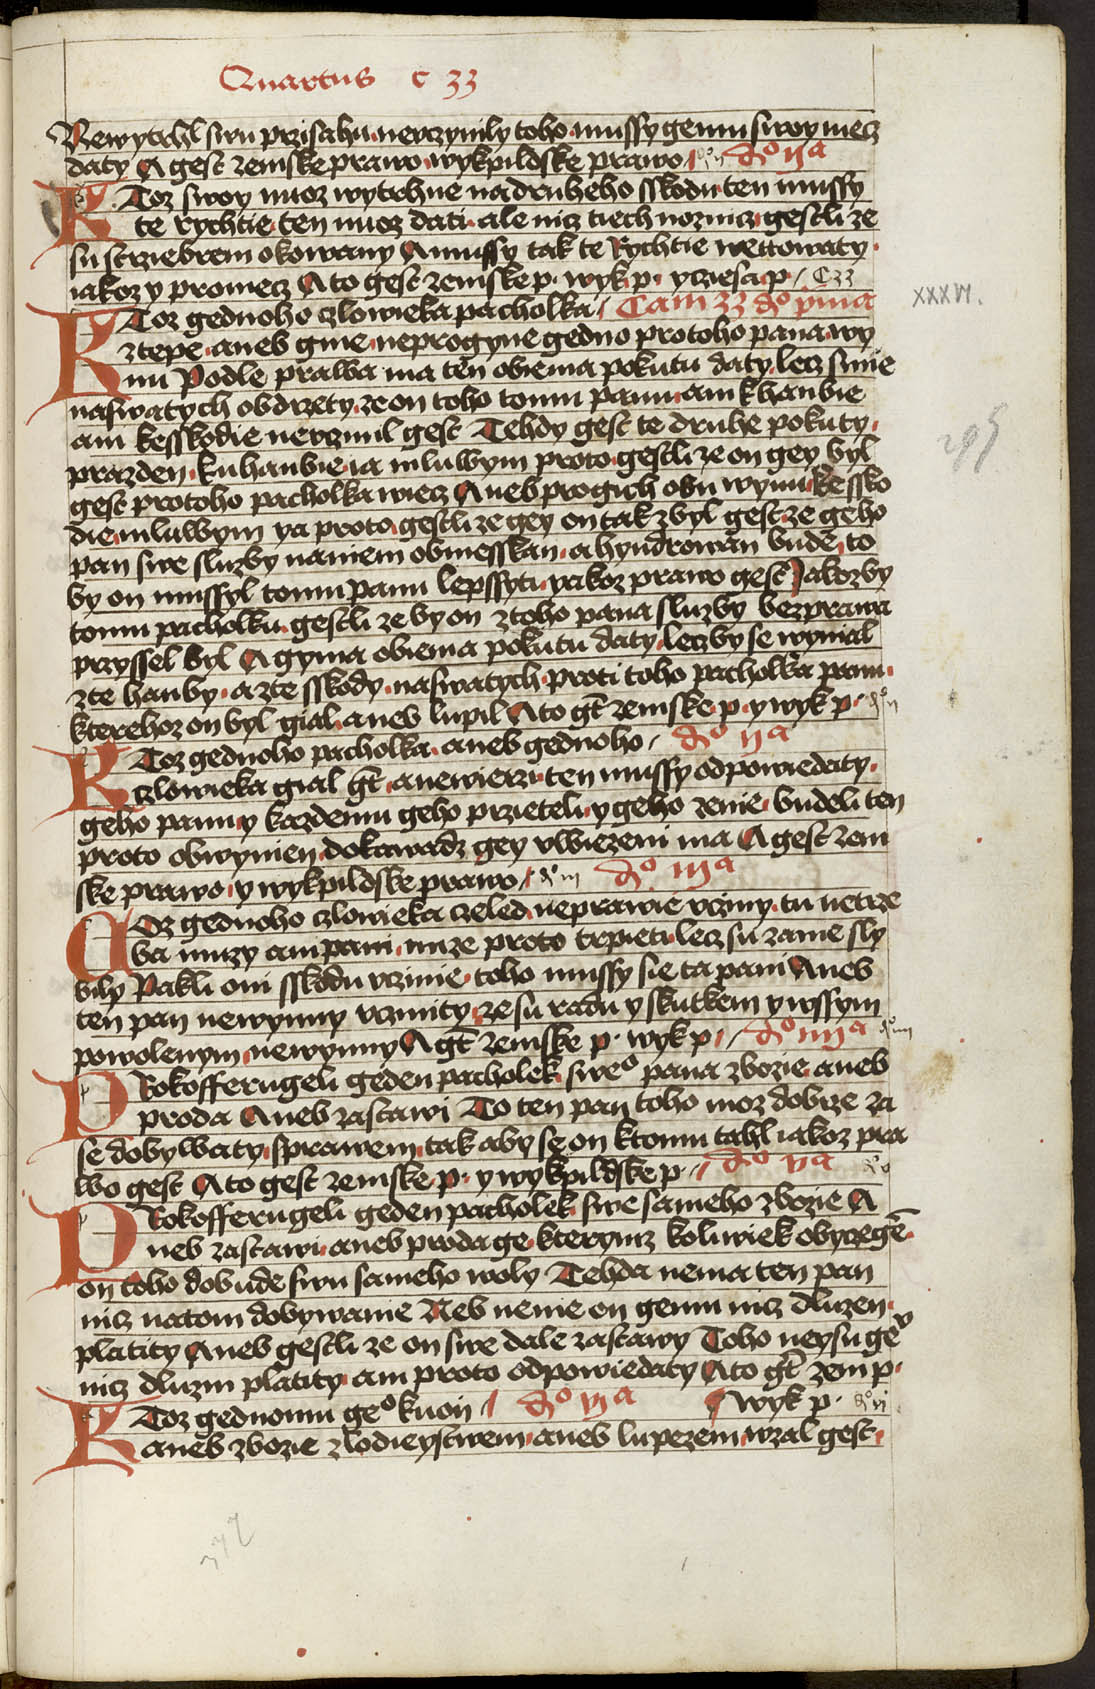 Quartus c 33
Newytrhl swu przisahu neuczynily toho mussy gemu swoy mecz
daty A gest zemske prawo wykpildske prawo dº ijª
KToz swoy nuoz wytrhne nadruheho sskodu ten mussy
te rychtie ten nuoz dati ale nicz tiech noznicz gestli ze
su strziebrem okowany A mussy tak te Rychtie wettowaty
iakoz y promecz A to gest zemske p. wyk p. y cziesa p. C 33
KToz gednoho czlowieka pacholka Cam 33 dº pima
xxxvi.
ztepe aneb gme neprogyne gedno protoho pana wy
nu Podle prawa ma ten obiema pokutu daty lecz smie
naswatych obdrzety ze on toho tomu panu ani khanbie
ani kesskodie neuczinil gest Tehdy gest te druhe pokuty
prazden kuhanbie ia mluwym proto gestli ze on gey byl
gest protoho pacholka wiecz Aneb progich obu wynu ke ssko
die mluwym ya proto gestli ze gey on tak zbyl gest ze geho
pan swe sluzby naniem obmesskan a hyndrowan bude to
by on mussyl tomu panu lepssyti yakoz prawo gest Jakozby
tomu pacholku gestli ze by on ztoho pana sluzby bezprawa
przyssel byl A gyma obiema pokutu daty leczby se wynial
zte hanby a zte sskody naswatych proti toho pacholka panu
kterehoz on byl gial aneb lupil A to gt zemske p. y wyk p. dº ij
KToz gednoho pacholka aneb gednoho dº ijª
czlowieka gial gt a newierzi ten mussy odpowiedaty
geho panu y kazdemu geho przieteli y geho zenie budeli ten
proto obwynien dokawadz gey vwiezeni ma A gest zem
ske prawo y wykpildske prawo dº iij dº iijª
CZoz gednoho czlowieka czeled neprawie vcziny tu netrze
ba muzy ani pani nize proto trpieti lecz su zanie sly
bily Pakli oni sskodu vczinie toho mussy sie ta pani Aneb
ten pan newynny vczinity ze su radu y skutkem y wssym
powolenym newynny A gt zemske p. wyk p. dº iiijª dº iiij
PRokofferugeli geden pacholek sweº pana zbozie aneb
proda Aneb zastawi To ten pan toho moz dobrze za
se dobywaty sprawem tak aby se on ktomu tahl iakoz pra
wo gest A to gest zemske p. y wykpildske p. dº vª dº v
PRokofferugeli geden pacholek swe sameho zbozie A
neb zastawi aneb proda ge kterymz koliwiek obyczege
on toho dobude swu sameho woly Tehda nema ten pan
nicz natom dobywanie Neb nenie on gemu nicz dluzen
platity Aneb gestli ze on swe dale zastawy Toho neysu ge
nicz dluzni platity ani proto odpowiedaty A to gt zem p.
wyk p. dº vj
KToz gednomu geº kuon dº vjª
aneb zbozie zlodieystwem aneb lupezem wzal gest